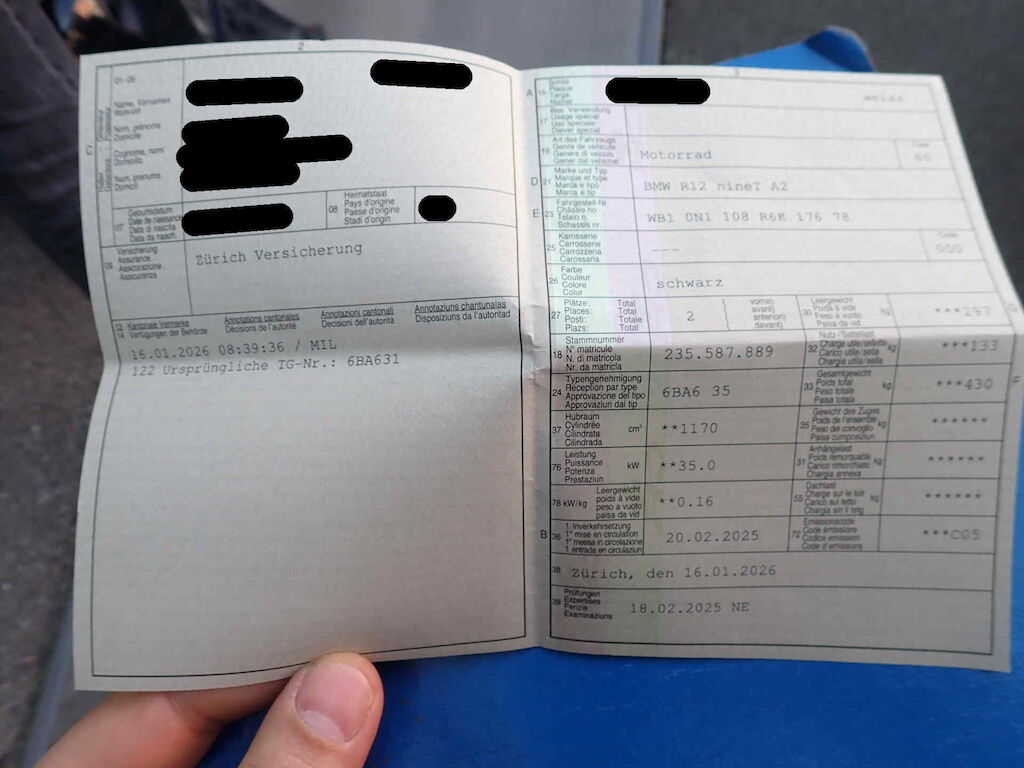 2
01-06
Name, Vornamen
Wohnort
Nom, prénoms
Domicile
Cognome, nomi
Domicilio
Num, prenums
Domicil
C
07
Geburtsdatum
Date de naissance
Data di nascita
Data da nasch.
08
Heimatstaat
Pays d'origine
Paese d'origine
Stadi d'origin
09
Versicherung
Assurance
Assicurazione
Assicuranza
Zürich Versicherung
13
14
Kantonale Vermerke
Verfügungen der Behörde
Annotations cantonales
Décisions de l'autorité
Annotazioni cantonali
Decisioni dell'autorità
Annotaziuns chantunalas
Disposiziuns da l'autoritad
16.01.2026 08:39:36 / MIL
122 Ursprüngliche TG-Nr.: 6BA631
3
A
15
Schild
Plaque
Targa
Numer
17
Bes. Verwendung
Usage spécial
Uso speciale
Diever spezial
19
Art des Fahrzeugs
Genre de véhicule
Genere di veicolo
Gener dal vehichel
Motorrad
Code
60
D
21
Marke und Typ
Marque et type
Marca e tipo
Marca e tip
BMW R12 nineT A2
E
23
Fahrgestell-Nr.
Châssis no
Telaio n.
Schassis nr.
WB1 0N1 108 R6K 176 78
25
Karosserie
Carrosserie
Carrozzeria
Carossaria
---
Code
000
26
Farbe
Couleur
Colore
Colur
schwarz
27
Plätze: Total
Places: Total
Posti: Totale
Plazs: Total
2
vorne)
avant)
anteriori)
davant)
30
Leergewicht
Poids à vide
Peso a vuoto
Paisa da vid
kg
***297
G
18
Stammnummer
N° matricule
N. di matricola
Nr. da matricla
235.587.889
32
Nutz-/Sattellast
Charge utile/sellette
Carico utile/sella
Chargia utila/sella
kg
***133
24
Typengenehmigung
Réception par type
Approvazione del tipo
Approvaziun dal tip
6BA6 35
33
Gesamtgewicht
Poids total
Peso totale
Paisa totala
kg
***430
37
Hubraum
Cylindrée
Cilindrata
Cilindrada
cm³
**1170
35
Gewicht des Zuges
Poids de l'ensemble
Peso del convoglio
Paisa cumposiziun
kg
******
76
Leistung
Puissance
Potenza
Prestaziun
kW
**35.0
31
Anhängelast
Poids remorquable
Carico rimorchiato
Chargia annexa
kg
******
78 kW/kg
Leergewicht
poids à vide
peso a vuoto
paisa da vid
**0.16
55
Dachlast
Charge sur le toit
Carico sul tetto
Chargia sin il tetg
kg
******
B
36
1. Inverkehrsetzung
1re mise en circulation
1a messa in circolazione
1. entrada en circulaziun
20.02.2025
72
Emissionscode
Code émissions
Codice emissioni
Code d'emissiuns
***C05
38
Zürich, den 16.01.2026
39
Prüfungen
Expertises
Perizie
Examinaziuns
18.02.2025 NE